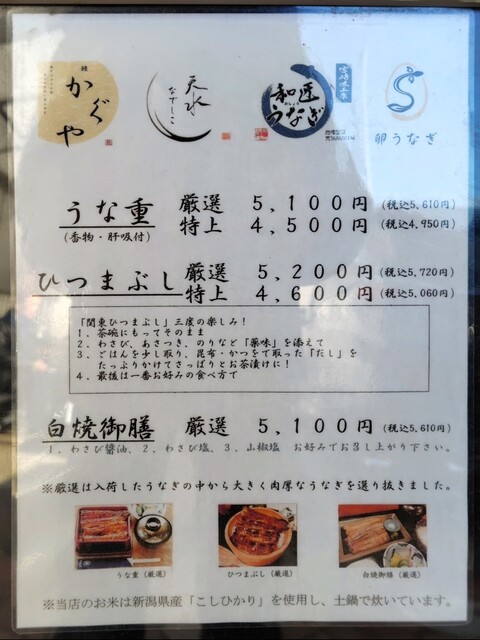 鰻
かぐや
天水
なでしこ
宮崎味上家
和匠
うなぎ
卵うなぎ
うな重 厳選 5,100円 (税込5,610円)
特上 4,500円 (税込4,950円)
(香物・肝吸付)
ひつまぶし 厳選 5,200円 (税込5,720円)
特上 4,600円 (税込5,060円)
「関東ひつまぶし」三度の楽しみ!
1.茶碗にもってそのまま
2.わさび、あさつき、のりなど「薬味」を添えて
3.ごはんを少し取り、昆布・かつをで取った「だし」を
たっぷりかけてさっぱりとお茶漬けに!
4.最後は一番お好みの食べ方で
白焼御膳 厳選 5,100円 (税込5,610円)
1.わさび醤油、2.わさび塩、3.山椒塩 お好みでお召し上がり下さい。
※厳選は入荷したうなぎの中から大きく肉厚なうなぎを選り抜きました。
うな重(厳選) ひつまぶし(厳選) 白焼御膳(厳選)
※当店のお米は新潟県産「こしひかり」を使用し、土鍋で炊いています。